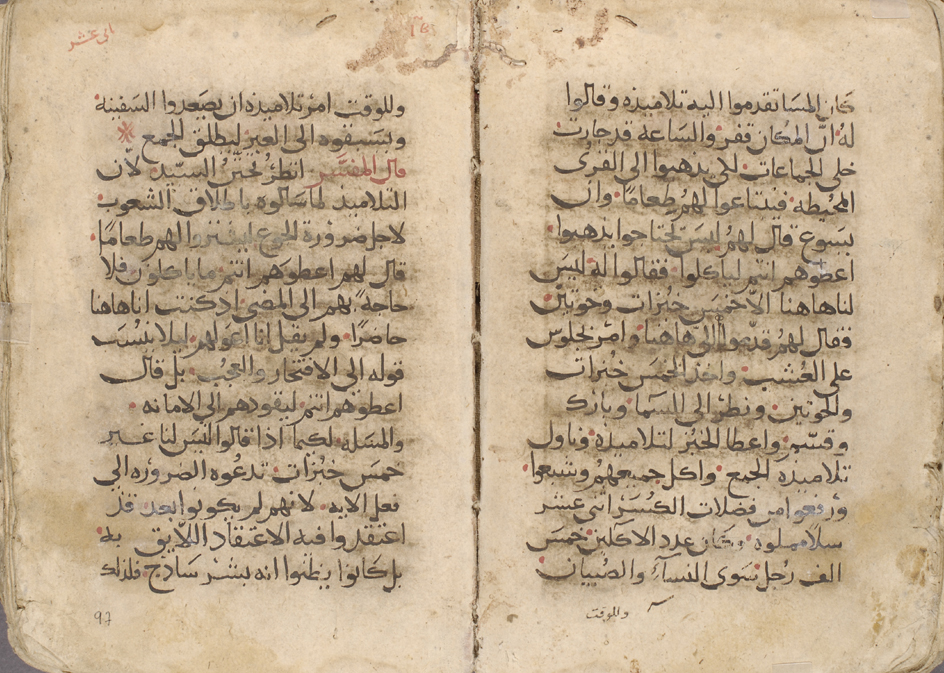 كان المسا تقدموا اليه تلاميذه وقالوا
له ان المكان قفر والساعة قد جازت
خلى الجماعات لكى يذهبوا الى القرى
المحيطه فيبتاعوا لهم طعاما وان
يسوع قال لهم ليس يحتاجوا يذهبوا
اعطوهم انتم لياكلوا فقالوا له ليس
لنا هاهنا الا خمس خبزات وحوتين
فقال لهم قدموا الى هاهنا وامر بجلوس
على العشب واخذ الخمس خبزات
والحوتين ونظر الى السما وبارك
وقسم واعطا الخبز لتلاميذه وناول
تلاميذه الجمع واكل جميعهم وشبعوا
ورفعوا من فضلات الكسر اثنى عشر
سلا مملوه وكان عدد الاكلين خمس
الف رجل سوى النساء والصبيان
وللوقت
الى عشر
وللوقت امر تلاميذه ان يصعدوا السفينه
ويسبقوه الى العبر ليطلق الجمع
قال المفسر انظر تحنن السيد لان
التلاميذ لما سالوه باطلاق الشعوب
لاجل ضرورة الجوع ليشتروا لهم طعاما
قال لهم اعطوهم انتم ما ياكلون فلا
حاجة بهم الى المضى اذ كنت انا هاهنا
حاضرا ولم يقل انا اعولهم ليلا ينسب
قوله الى الافتخار والعجب بل قال
اعطوهم انتم ليقودهم الى الامانه
والمسله لكيما اذا قالوا ليس لنا غير
خمس خبزات تدعوه الضروره الى
فعل الايه لانهم لم يكونوا بعد قد
اعتقدوا فيه الاعتقاد اللايق به
بل كانوا يظنوا انه بشر ساذج فلذلك
97